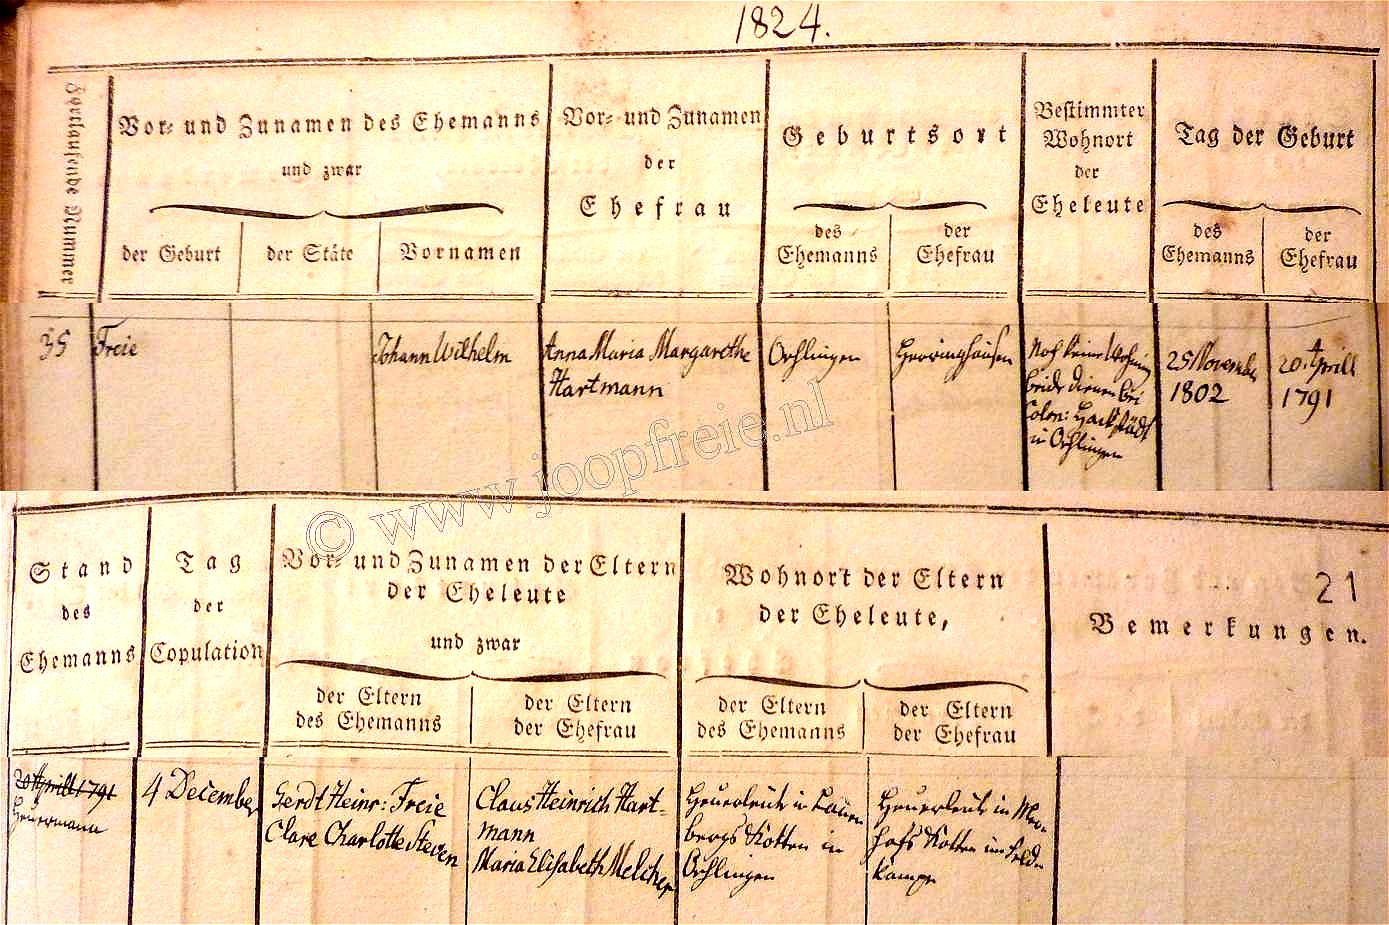 1824.
Fortlaufende Nummer
Vor- und Zunamen des Ehemanns
und zwar
der Geburt
der Stäte
Vornamen
Vor- und Zunamen
der
Ehefrau
Geburtsort
des
Ehemanns
der
Ehefrau
Bestimmter
Wohnort
der
Eheleute
Tag der Geburt
des
Ehemanns
der
Ehefrau
35
Freie
Johann Wilhelm
Anna Maria Margarethe
Hartmann
Oehlingen
Herringhausen
Noch keine Wohnung
beide dienen bei
Colon: Hackstädt
in Oehlingen
25 November
1802
20. Aprill
1791
© www.joopfreie.nl
Stand
des
Ehemanns
Tag
der
Copulation
Vor- und Zunamen der Eltern
der Eheleute
und zwar
der Eltern
des Ehemanns
der Eltern
der Ehefrau
Wohnort der Eltern
der Eheleute,
der Eltern
des Ehemanns
der Eltern
der Ehefrau
21
Bemerkungen.
20 Aprill 1791
Heuermann
4 December
Gerdt Heinr: Freie
Clare Charlotte Steven
Claus Heinrich Hart-
mann
Maria Elisabeth Melcher
Heuerleute in
bergs Kotten in
Oehlingen
Heuerleute in
hofs Kotten im Felde
kampe